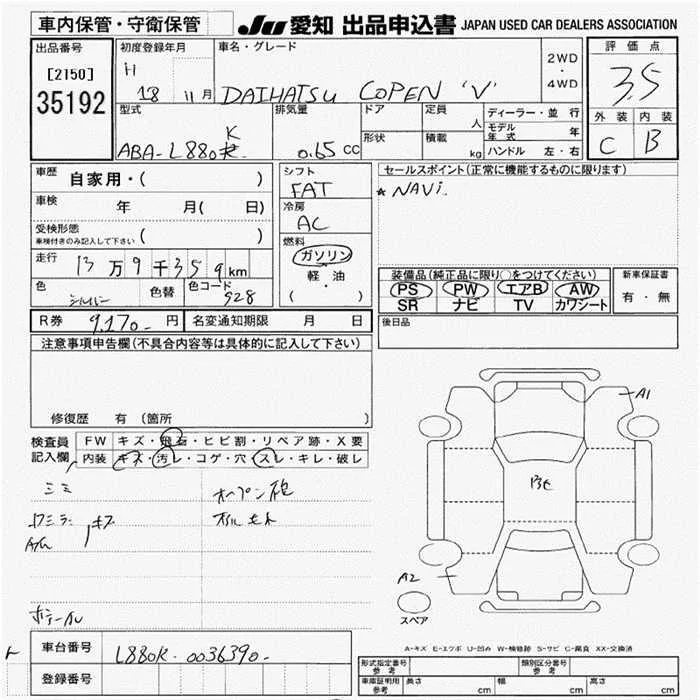 車内保管・守衛保管
JU 愛知 出品申込書 JAPAN USED CAR DEALERS ASSOCIATION
出品番号
[2150]
35192
初度登録年月
H
18 11月
車名・グレード
DAIHATSU COPEN 'V'
2WD
・
4WD
評価点
3.5
外装 内装
C B
型式
K
ABA-L880
排気量
0.65 CC
ドア
形状
定員
人
積載
kg
ディーラー・並行
モデル年式 年
ハンドル 左・右
車歴
自家用・( )
車検
年 月( 日)
受検形態
車検付きのみ記入して下さい ( )
走行
13万9千359km
色
シルバー
色替
色コード
S28
シフト
FAT
冷房
AC
燃料
ガソリン
軽・油
( ・ )
セールスポイント(正常に機能するものに限ります)
★NAVi.
装備品(純正品に限り○をつけてください)
PS PW エアB AW
SR ナビ TV カワシート
新車保証書
有・無
後日品
R券 9,170- 円
名変通知期限 月 日
注意事項申告欄(不具合内容等は具体的に記入して下さい)
修復歴 有 (箇所 )
検査員
記入欄
FW キズ・飛石・ヒビ割・リペア跡・X要
内装 キズ・汚レ・コゲ・穴・スレ・キレ・破レ
キズ
A1
A2
スペア
A-キズ E-エクボ U-凹み W-補修跡 S-サビ C-腐食 XX-交換済
車台番号
L880K-0036390-
登録番号
形式指定番号
参考
類別区分番号
参考
車庫証明用
参考
長さ cm
幅 cm
高さ cm